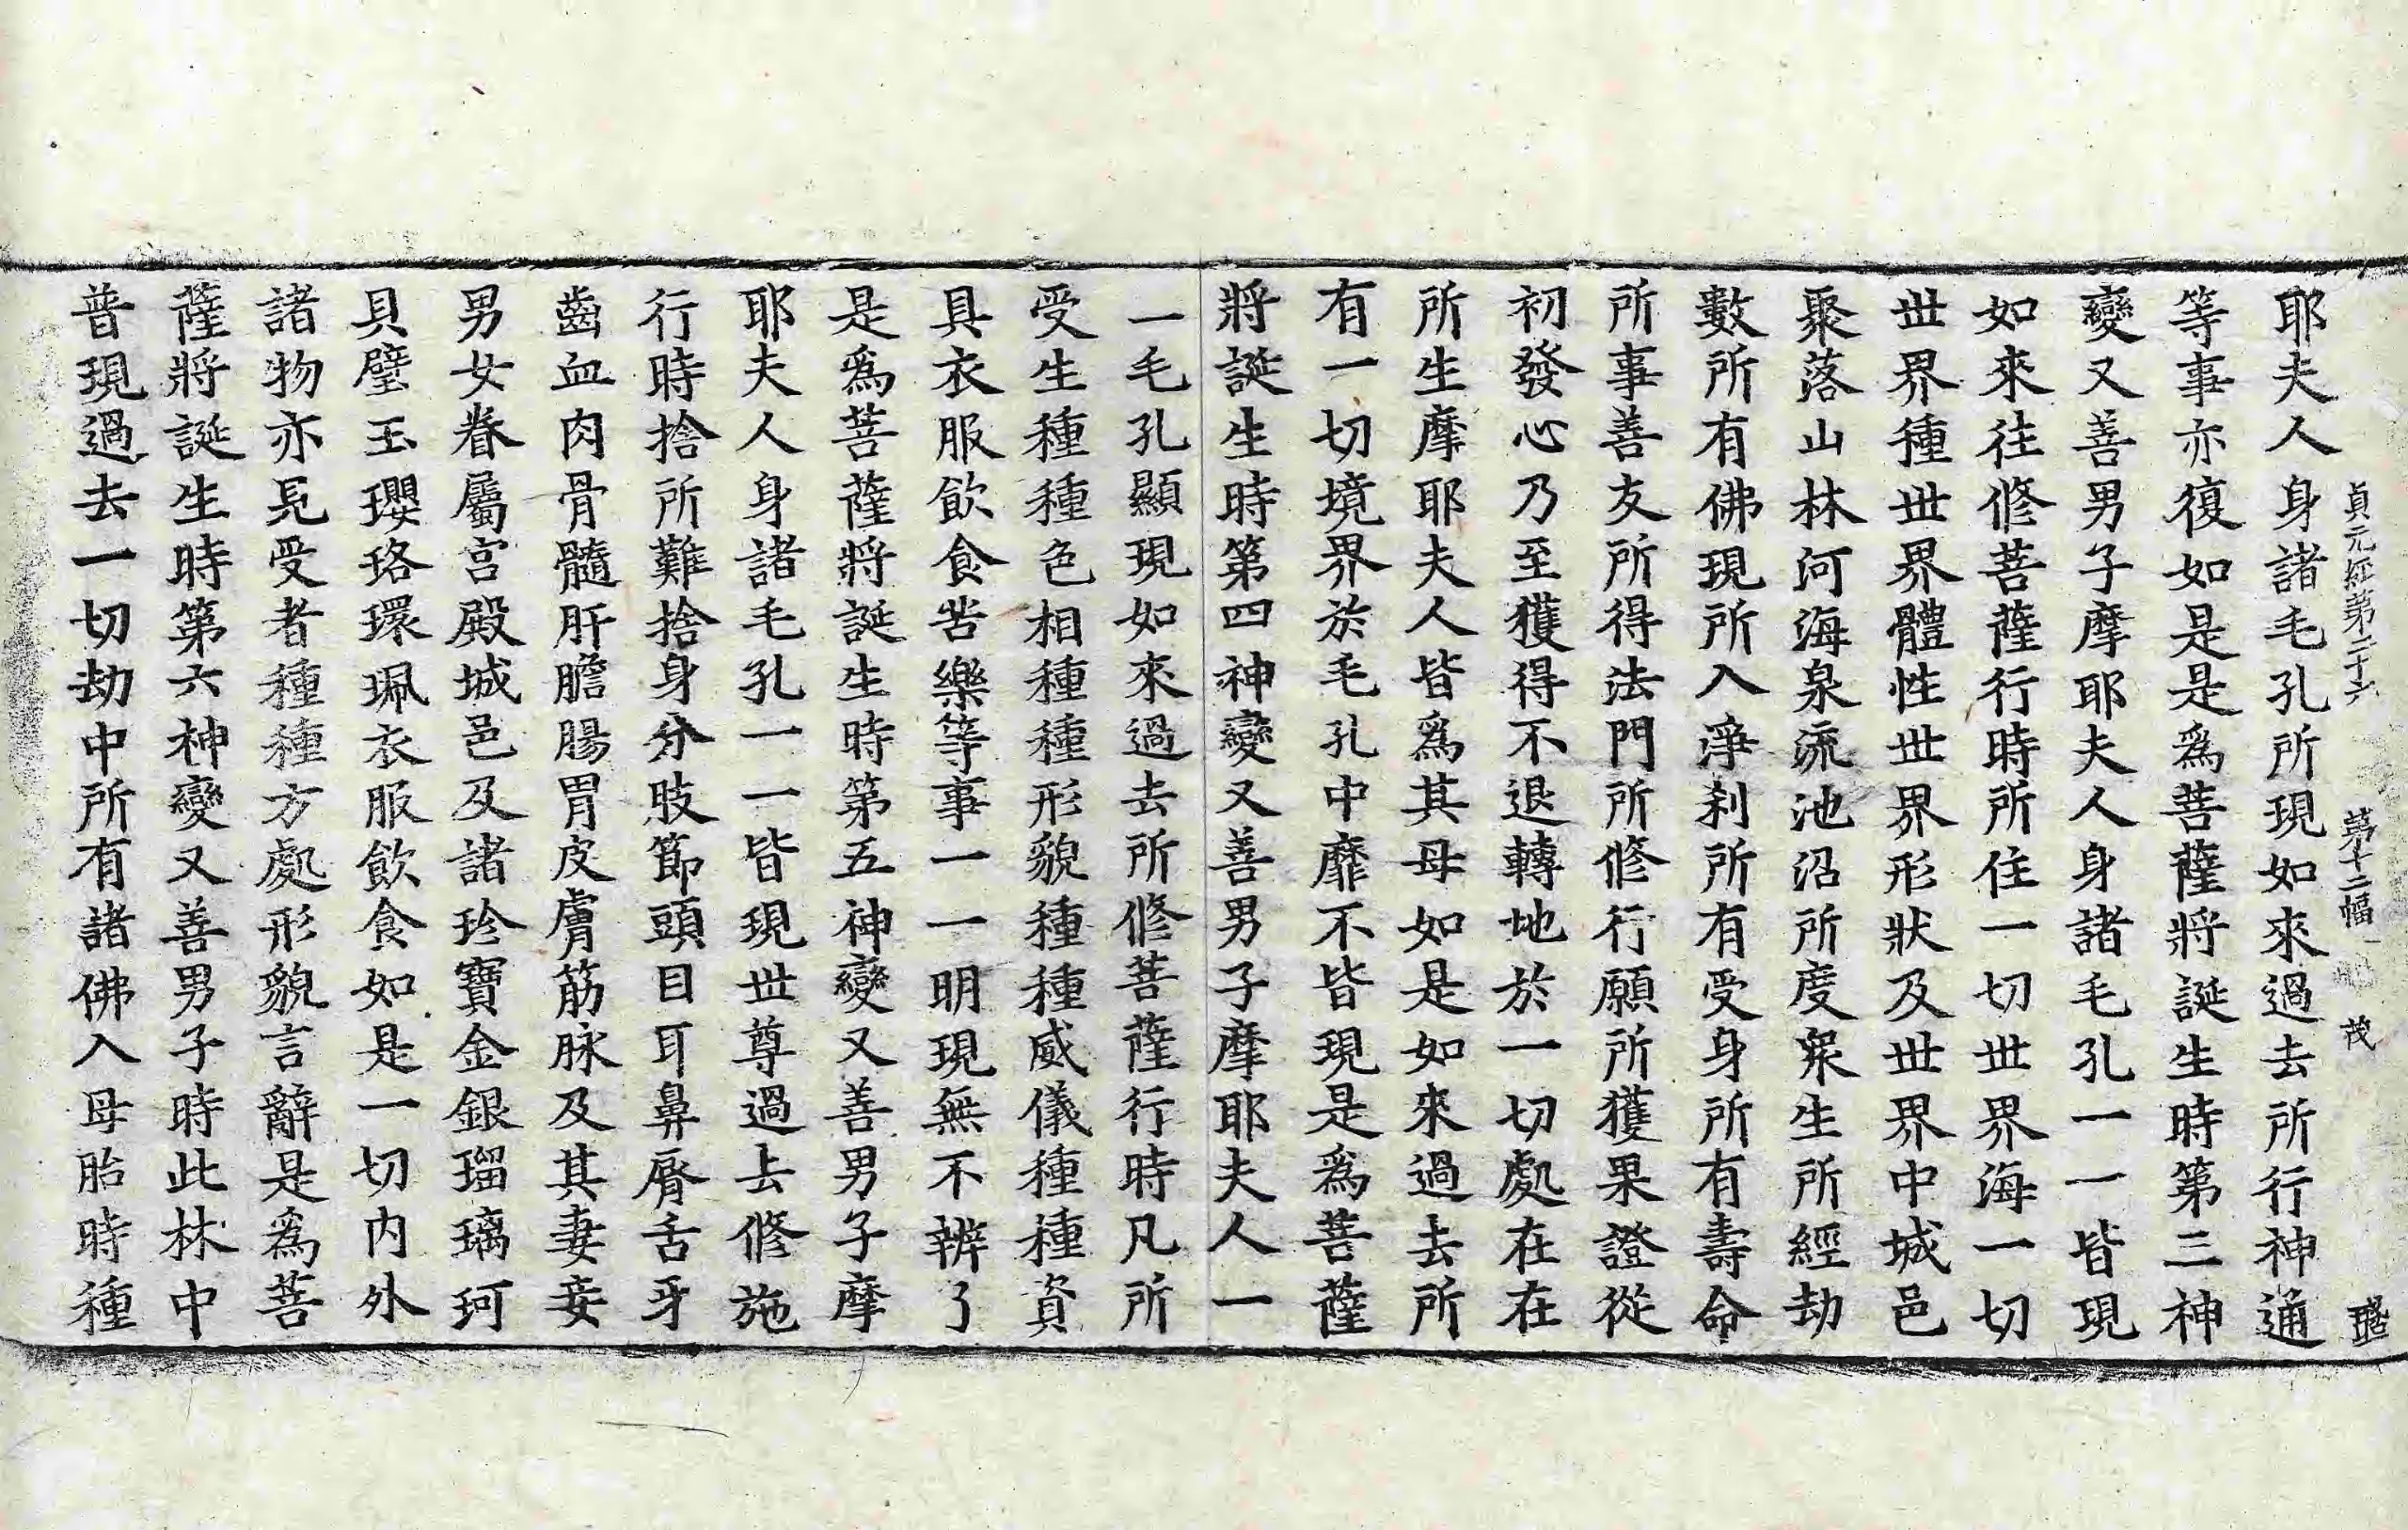 貞元經第二十六 第十二幅 茂
耶夫人身諸毛孔所現如來過去所行神通
等事亦復如是是爲菩薩將誕生時第三神
變又善男子摩耶夫人身諸毛孔一一皆現
如來往修菩薩行時所住一切世界海一切
世界種世界體性世界形狀及世界中城邑
聚落山林河海泉流池沼所度衆生所經劫
數所有佛現所入淨刹所有受身所有壽命
所事善友所得法門所修行願所獲果證從
初發心乃至獲得不退轉地於一切處在在
所生摩耶夫人皆爲其母如是如來過去所
有一切境界於毛孔中靡不皆現是爲菩薩
將誕生時第四神變又善男子摩耶夫人一
一毛孔顯現如來過去所修菩薩行時凡所
受生種種色相種種形貌種種威儀種種資
具衣服飲食苦樂等事一一明現無不辨了
是爲菩薩將誕生時第五神變又善男子摩
耶夫人身諸毛孔一一皆現世尊過去修施
行時捨所難捨身分肢節頭目耳鼻脣舌牙
齒血肉骨髓肝膽腸胃皮膚筋脉及其妻妾
男女眷屬宮殿城邑及諸珍寶金銀瑠璃珂
貝璧玉瓔珞環珮衣服飲食如是一切内外
諸物亦見受者種種方處形貌言辭是爲菩
薩將誕生時第六神變又善男子時此林中
普現過去一切劫中所有諸佛入母胎時種